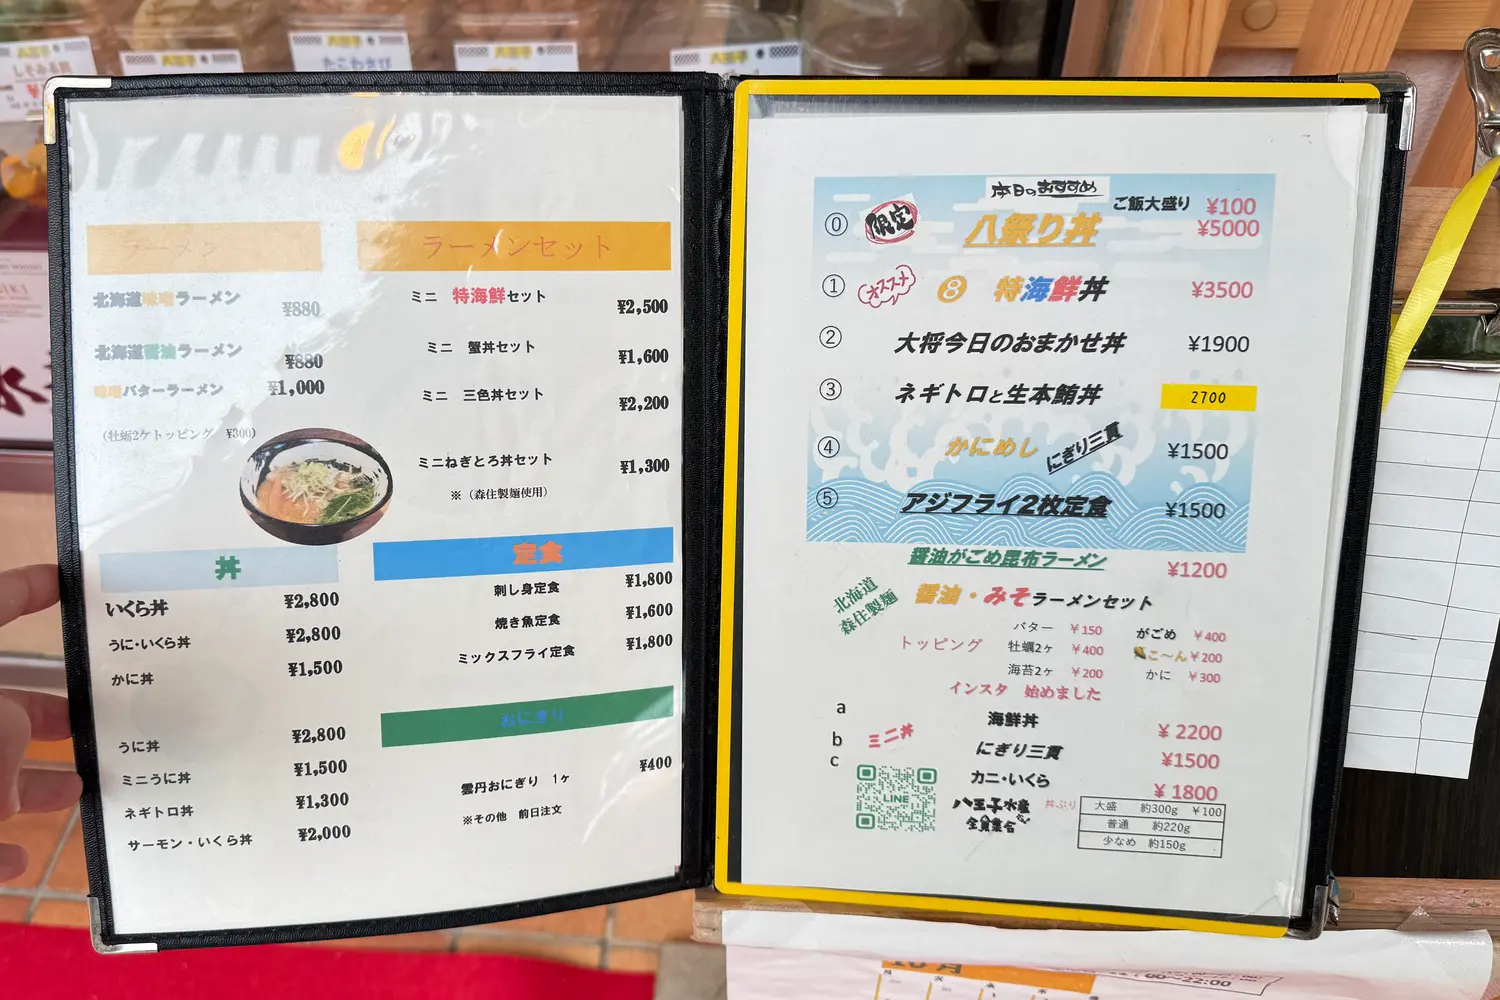 ラーメン
北海道味噌ラーメン ¥880
北海道醤油ラーメン ¥880
味噌バターラーメン ¥1,000
(牡蛎2ケトッピング ¥300)
ラーメンセット
ミニ 特海鮮セット ¥2,500
ミニ 蟹丼セット ¥1,600
ミニ 三色丼セット ¥2,200
ミニねぎとろ丼セット ¥1,300
※(森住製麺使用)
丼
いくら丼 ¥2,800
うに・いくら丼 ¥2,800
かに丼 ¥1,500
うに丼 ¥2,800
ミニうに丼 ¥1,500
ネギトロ丼 ¥1,300
サーモン・いくら丼 ¥2,000
定食
刺し身定食 ¥1,800
焼き魚定食 ¥1,600
ミックスフライ定食 ¥1,800
おにぎり
雲丹おにぎり 1ヶ ¥400
※その他 前日注文
本日のおすすめ ご飯大盛り ¥100
⓪ 限定 八祭り丼 ¥5000
① オススメ 8 特海鮮丼 ¥3500
② 大将今日のおまかせ丼 ¥1900
③ ネギトロと生本鮪丼 2700
④ かにめし にぎり三貫 ¥1500
⑤ アジフライ2枚定食 ¥1500
醤油がごめ昆布ラーメン ¥1200
北海道
森住製麺
醤油・みそラーメンセット
トッピング
バター ¥150 がごめ ¥400
牡蠣2ヶ ¥400 こ〜ん ¥200
海苔2ヶ ¥200 かに ¥300
インスタ 始めました
ミニ丼
a 海鮮丼 ¥2200
b にぎり三貫 ¥1500
c カニ・いくら ¥1800
LINE
八王子水産
全員集合
丼ぶり
大盛 約300g ¥100
普通 約220g
少なめ 約150g
たこわさび
10月
月 火 水 木